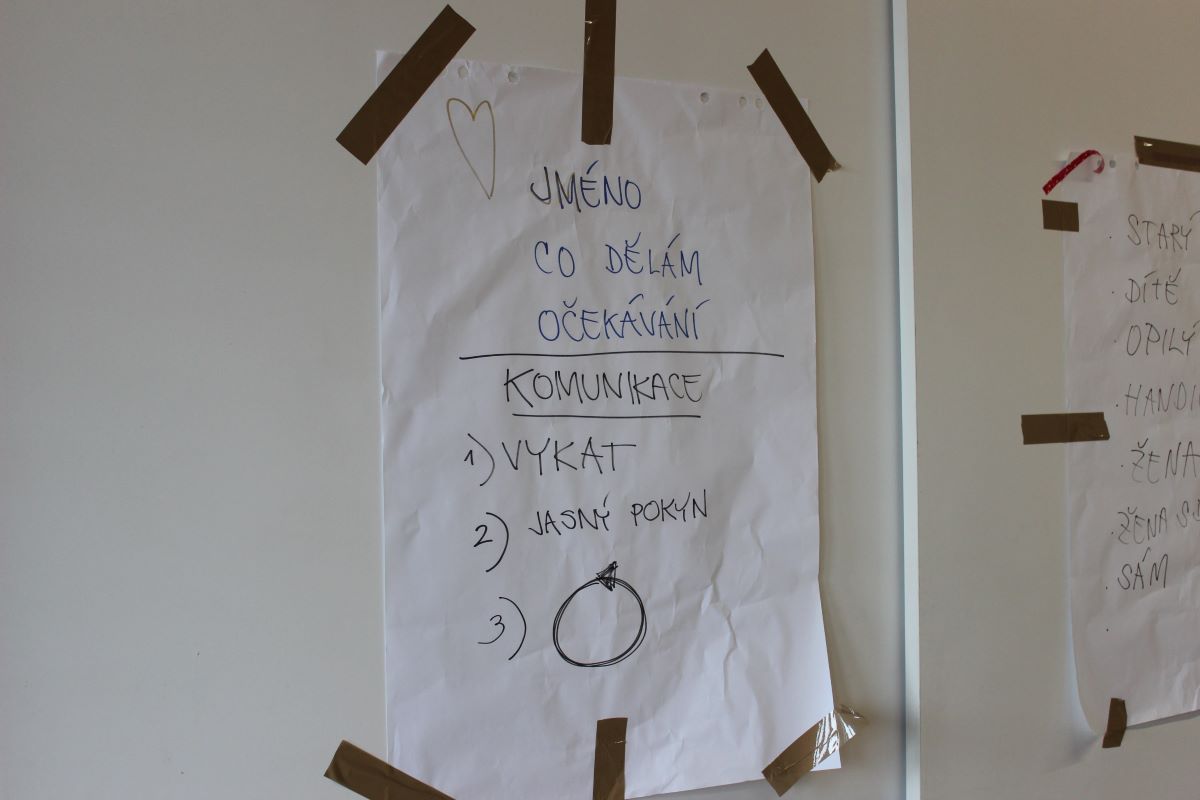 JMÉNO
CO DĚLÁM
OČEKÁVÁNÍ
KOMUNIKACE
1) VYKAT
2) JASNÝ POKYN
3)
· STARÝ
· DÍTĚ
· OPILÝ
· ŽENA
· ŽENA
· SÁM